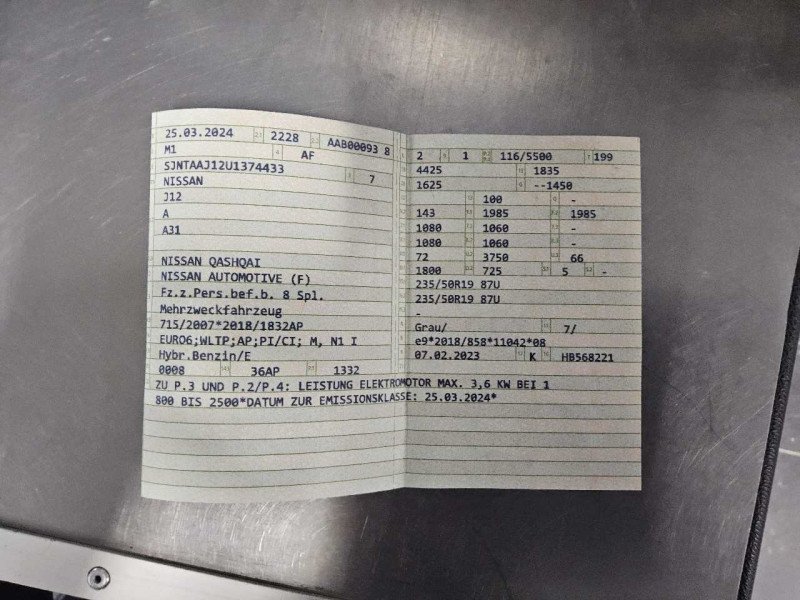 25.03.2024 2228 AAB00093 8
M1 AF
SJNTAAJ12U1374433 7
NISSAN
J12
A
A31
NISSAN QASHQAI
NISSAN AUTOMOTIVE (F)
Fz.z.Pers.bef.b. 8 Spl.
Mehrzweckfahrzeug
715/2007*2018/1832AP
EURO6;WLTP;AP;PI/CI; M, N1 I
Hybr.Benzin/E
0008 36AP 1332
2 1 116/5500 199
4425 1835
1625 --1450
100 -
143 1985 1985
1080 1060 -
1080 1060 -
72 3750 66
1800 725 5 -
235/50R19 87U
235/50R19 87U
-
Grau/ 7/
e9*2018/858*11042*08
07.02.2023 K HB568221
ZU P.3 UND P.2/P.4: LEISTUNG ELEKTROMOTOR MAX. 3,6 KW BEI 1
800 BIS 2500*DATUM ZUR EMISSIONSKLASSE: 25.03.2024*